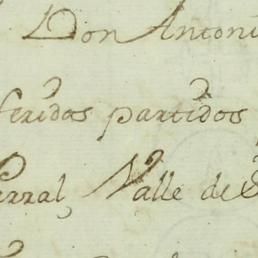 Don Antoni
feridos partidos
erral, Valle de S